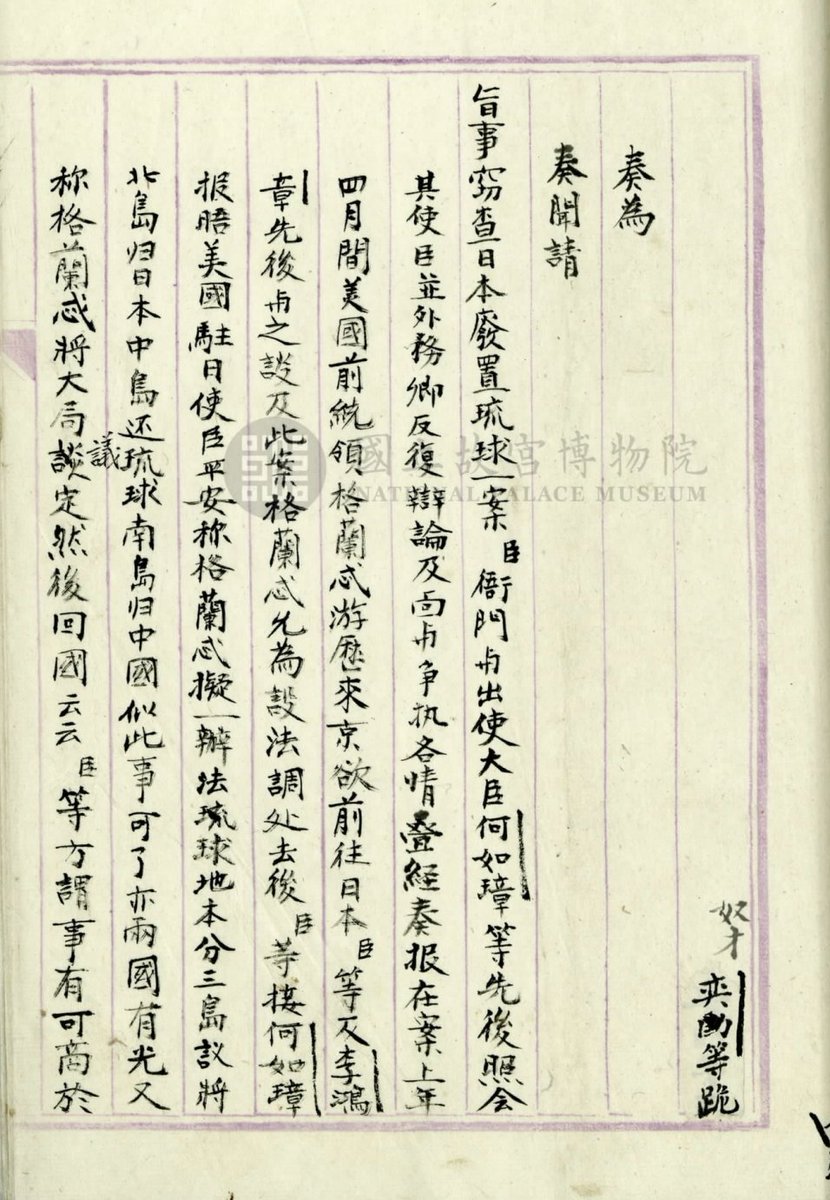 奴才奕劻等跪
奏為
奏聞請
旨事窃查日本廢置琉球一案臣衙門與出使大臣何如璋等先後照会
其使臣並外務卿反復辯論及面與争执各情叠经奏报在案上年
四月間美國前統領格蘭忒游歷來京欲前往日本臣等及李鴻
章先後與之談及此案格蘭忒允為設法調处去後臣等接何如璋
报晤美國駐日使臣平安称格蘭忒擬一辦法琉球地本分三島议将
北島归日本中島还琉球南島归中國似此事可了亦兩國有光又
称格蘭忒將大局談議定然後回國云云臣等方謂事有可商於
國立故宮博物院
NATIONAL PALACE MUSEUM